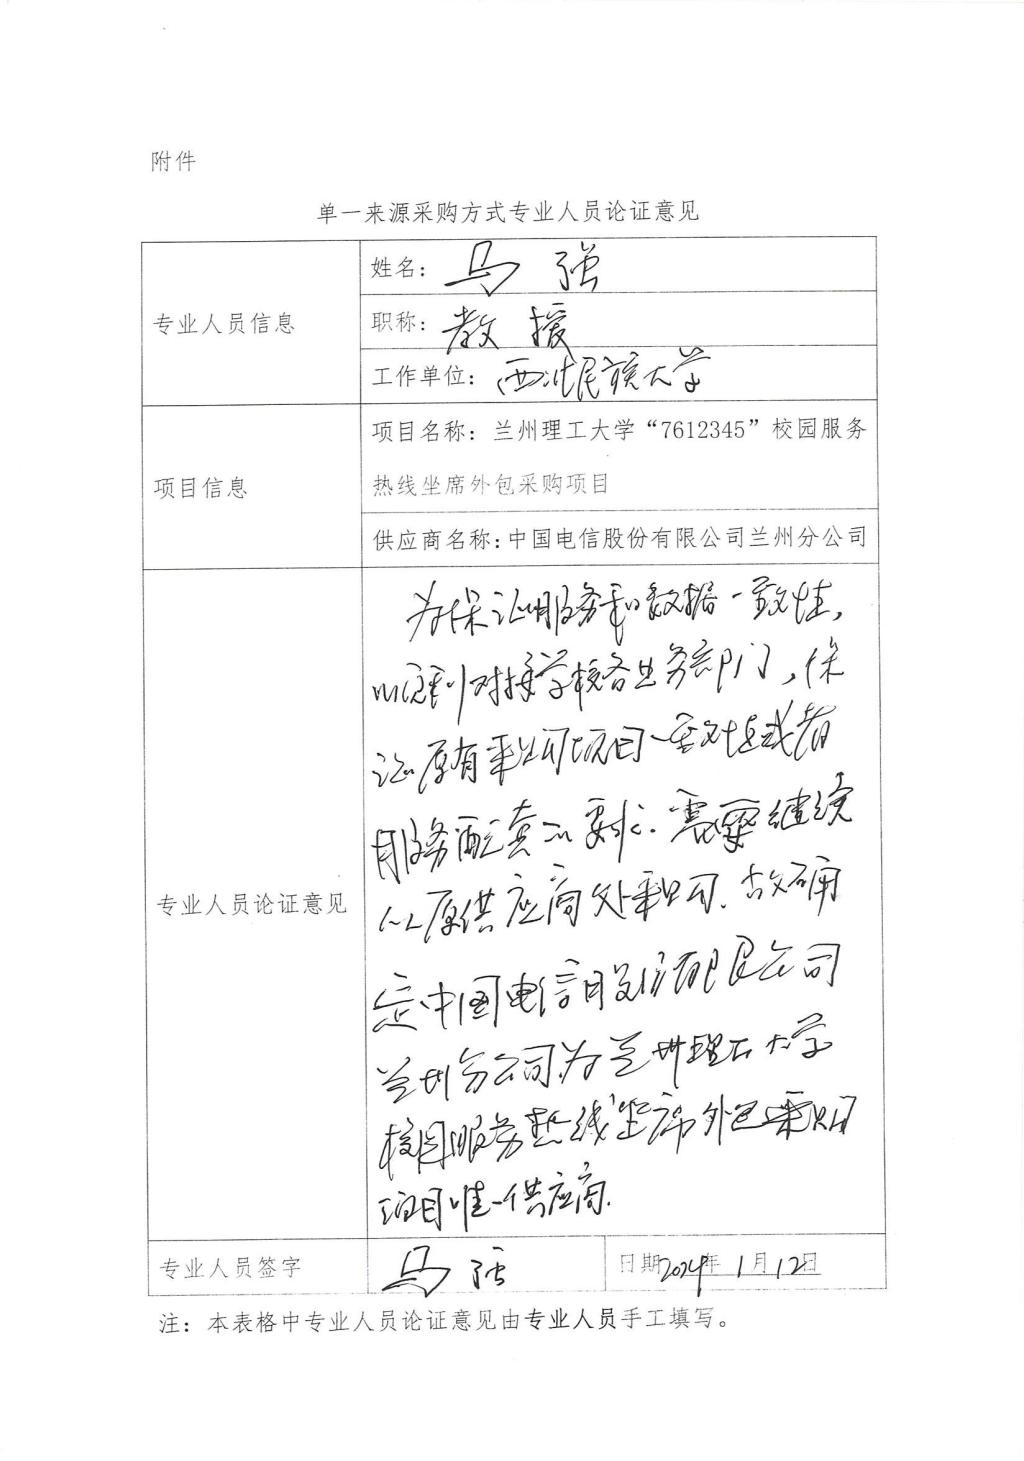 附件
单一来源采购方式专业人员论证意见
专业人员信息
姓名：马强
职称：教授
工作单位：西北民族大学
项目信息
项目名称：兰州理工大学“7612345”校园服务
热线坐席外包采购项目
供应商名称：中国电信股份有限公司兰州分公司
专业人员论证意见
为保证服务和数据一致性，
以便利对接学校各业务部门，保
证原有采购项目一致性或者
服务配套的要求．需要继续
从原供应商处采购．故确
定中国电信股份有限公司
兰州分公司为兰州理工大学
校园服务热线坐席外包采购
项目唯一供应商．
专业人员签字
马强
日期2024年1月12日
注：本表格中专业人员论证意见由专业人员手工填写。